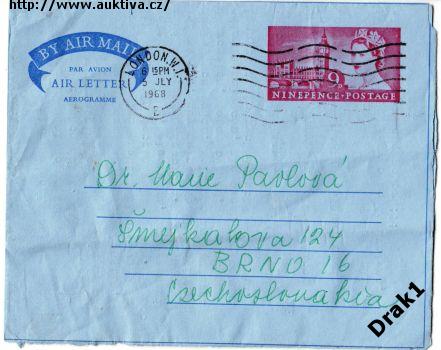 http://www.auktiva.cz/
BY AIR MAIL
PAR AVION
AIR LETTER
AEROGRAMME
LONDON. W.1.
6 15PM
9 JLY
1968
E
9D
NINEPENCE·POSTAGE
Dr. Marie Pavlová
Šmejkalova 124
BRNO 16
Czechoslovakia
Drak1